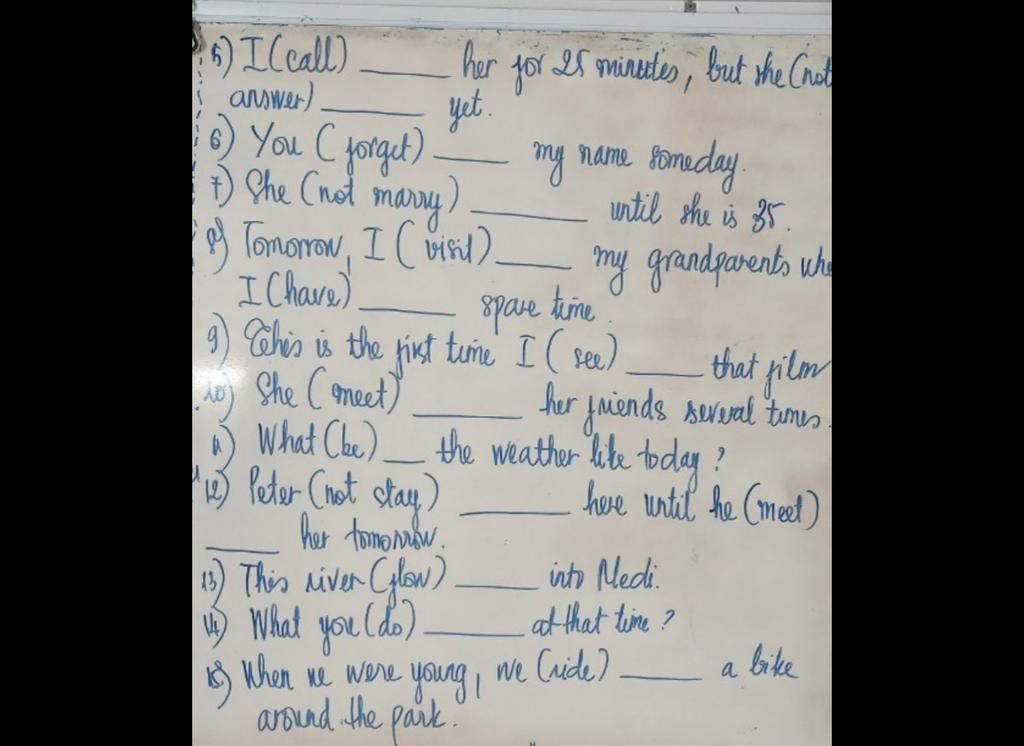 5) I (call) ______ her for 25 minutes, but she (not
answer) ______ yet.
6) You (forget) _____ my name someday.
7) She (not marry) ______ until she is 35.
8) Tomorrow, I (visit) _____ my grandparents whe
I (have) ______ spare time.
9) This is the first time I (see) _____ that film
10) She (meet) ______ her friends several times.
11) What (be) ___ the weather like today?
12) Peter (not stay) ______ here until he (meet)
_____ her tomorrow.
13) This river (flow) _____ into Medi.
14) What you (do) ______ at that time?
15) When we were young, we (ride) _____ a bike
around the park.